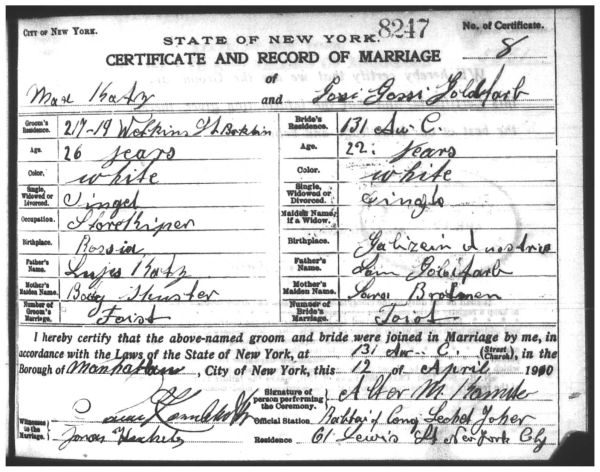 CITY OF NEW YORK. 8247 No. of Certificate.
STATE OF NEW YORK. 8
CERTIFICATE AND RECORD OF MARRIAGE
of
Max Katz and Gossi Goldfarb
Groom's Residence. 217-19 Watkins St Bride's Residence. 131 Aw. C.
Age. 26 years Age. 22 years
Color. white Color. white
Single, Widowed or Divorced. Singel Single, Widowed or Divorced. Single
Occupation. Storekiper Maiden Name, if a Widow.
Birthplace. Rossia Birthplace. Galizein Austria
Father's Name. Katz Father's Name. Sam Goldfarb
Mother's Maiden Name. Shuster Mother's Maiden Name. Sara Brotmen
Number of Groom's Marriage. Foist Number of Bride's Marriage. Foist
I hereby certify that the above-named groom and bride were joined in Marriage by me, in
accordance with the Laws of the State of New York, at 131 Aw. C. (Street Church), in the
Borough of Manhattan, City of New York, this 12 of April 1900
Signature of person performing the Ceremony. Alter M
Witnesses to the Marriage. Official Station Cong
Jonas Residence 61 Lewis St New York City